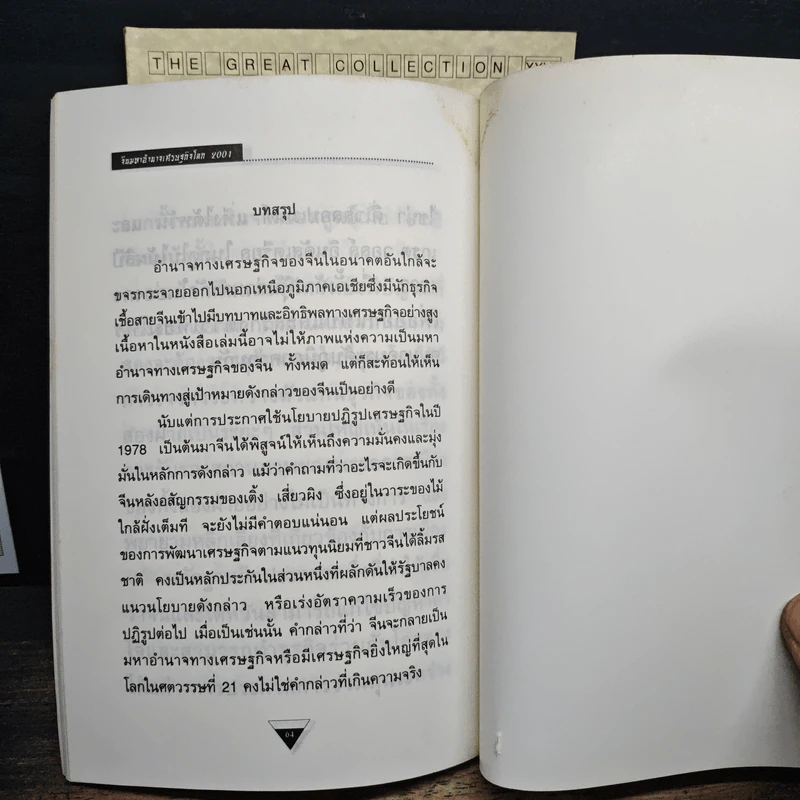 THE GREAT COLLECTION
จีนมหาอำนาจเศรษฐกิจโลก 2001
บทสรุป
อำนาจทางเศรษฐกิจของจีนในอนาคตอันใกล้จะ
ขจรกระจายออกไปนอกเหนือภูมิภาคเอเชียซึ่งมีนักธุรกิจ
เชื้อสายจีนเข้าไปมีบทบาทและอิทธิพลทางเศรษฐกิจอย่างสูง
เนื้อหาในหนังสือเล่มนี้อาจไม่ให้ภาพแห่งความเป็นมหา
อำนาจทางเศรษฐกิจของจีน ทั้งหมด แต่ก็สะท้อนให้เห็น
การเดินทางสู่เป้าหมายดังกล่าวของจีนเป็นอย่างดี
นับแต่การประกาศใช้นโยบายปฏิรูปเศรษฐกิจในปี
1978 เป็นต้นมาจีนได้พิสูจน์ให้เห็นถึงความมั่นคงและมุ่ง
มั่นในหลักการดังกล่าว แม้ว่าคำถามที่ว่าอะไรจะเกิดขึ้นกับ
จีนหลังอสัญกรรมของเติ้ง เสี่ยวผิง ซึ่งอยู่ในวาระของไม้
ใกล้ฝั่งเต็มที จะยังไม่มีคำตอบแน่นอน แต่ผลประโยชน์
ของการพัฒนาเศรษฐกิจตามแนวทุนนิยมที่ชาวจีนได้ลิ้มรส
ชาติ คงเป็นหลักประกันในส่วนหนึ่งที่ผลักดันให้รัฐบาลคง
แนวนโยบายดังกล่าว หรือเร่งอัตราความเร็วของการ
ปฏิรูปต่อไป เมื่อเป็นเช่นนั้น คำกล่าวที่ว่า จีนจะกลายเป็น
มหาอำนาจทางเศรษฐกิจหรือมีเศรษฐกิจยิ่งใหญ่ที่สุดใน
โลกในศตวรรษที่ 21 คงไม่ใช่คำกล่าวที่เกินความจริง
64